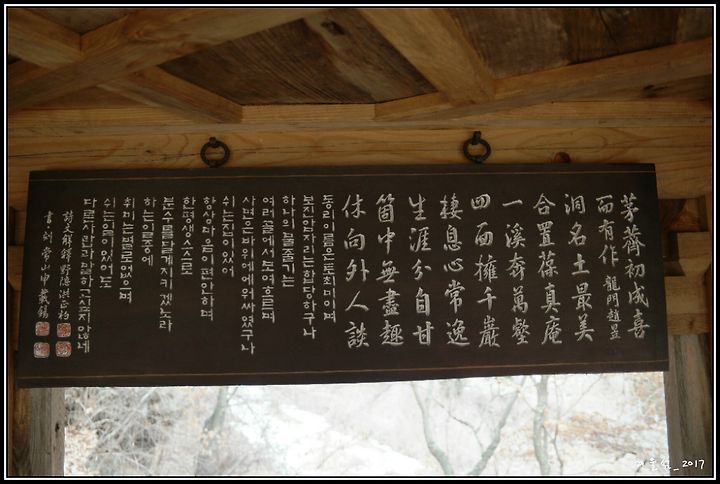 茅齊初成喜
而有作 龍門趙昱
洞名土最美
合置葆真庵
一溪奔萬壑
四面擁千巖
棲息心常逸
生涯分自甘
箇中無盡趣
休向外人談
동리이름은토최미이며
보진암자리는합당하구나
하나의 물줄기는
여러골에서모여흐르며
사면은바위에에워싸였구나
쉬는집이있어
항상마음이편안하며
한평생스스로
분수를달게지키겠노라
하는이곳중에
취미는별로없으며
쉬는일이있어도
다른사람과말하고싶지않네
詩文解釋 野隱洪正杓
書·刻 常山申載錫
2017